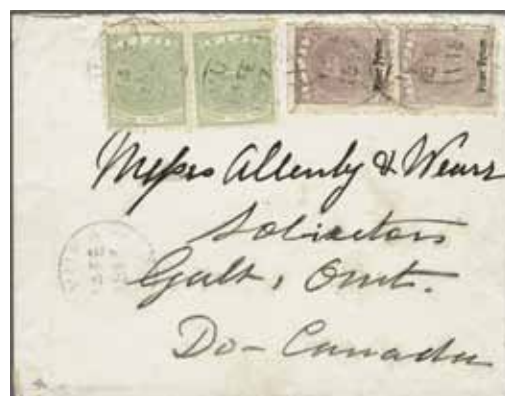 Messrs Allenby & Weir
Solicitors
Galt, Ont.
Do- Canada